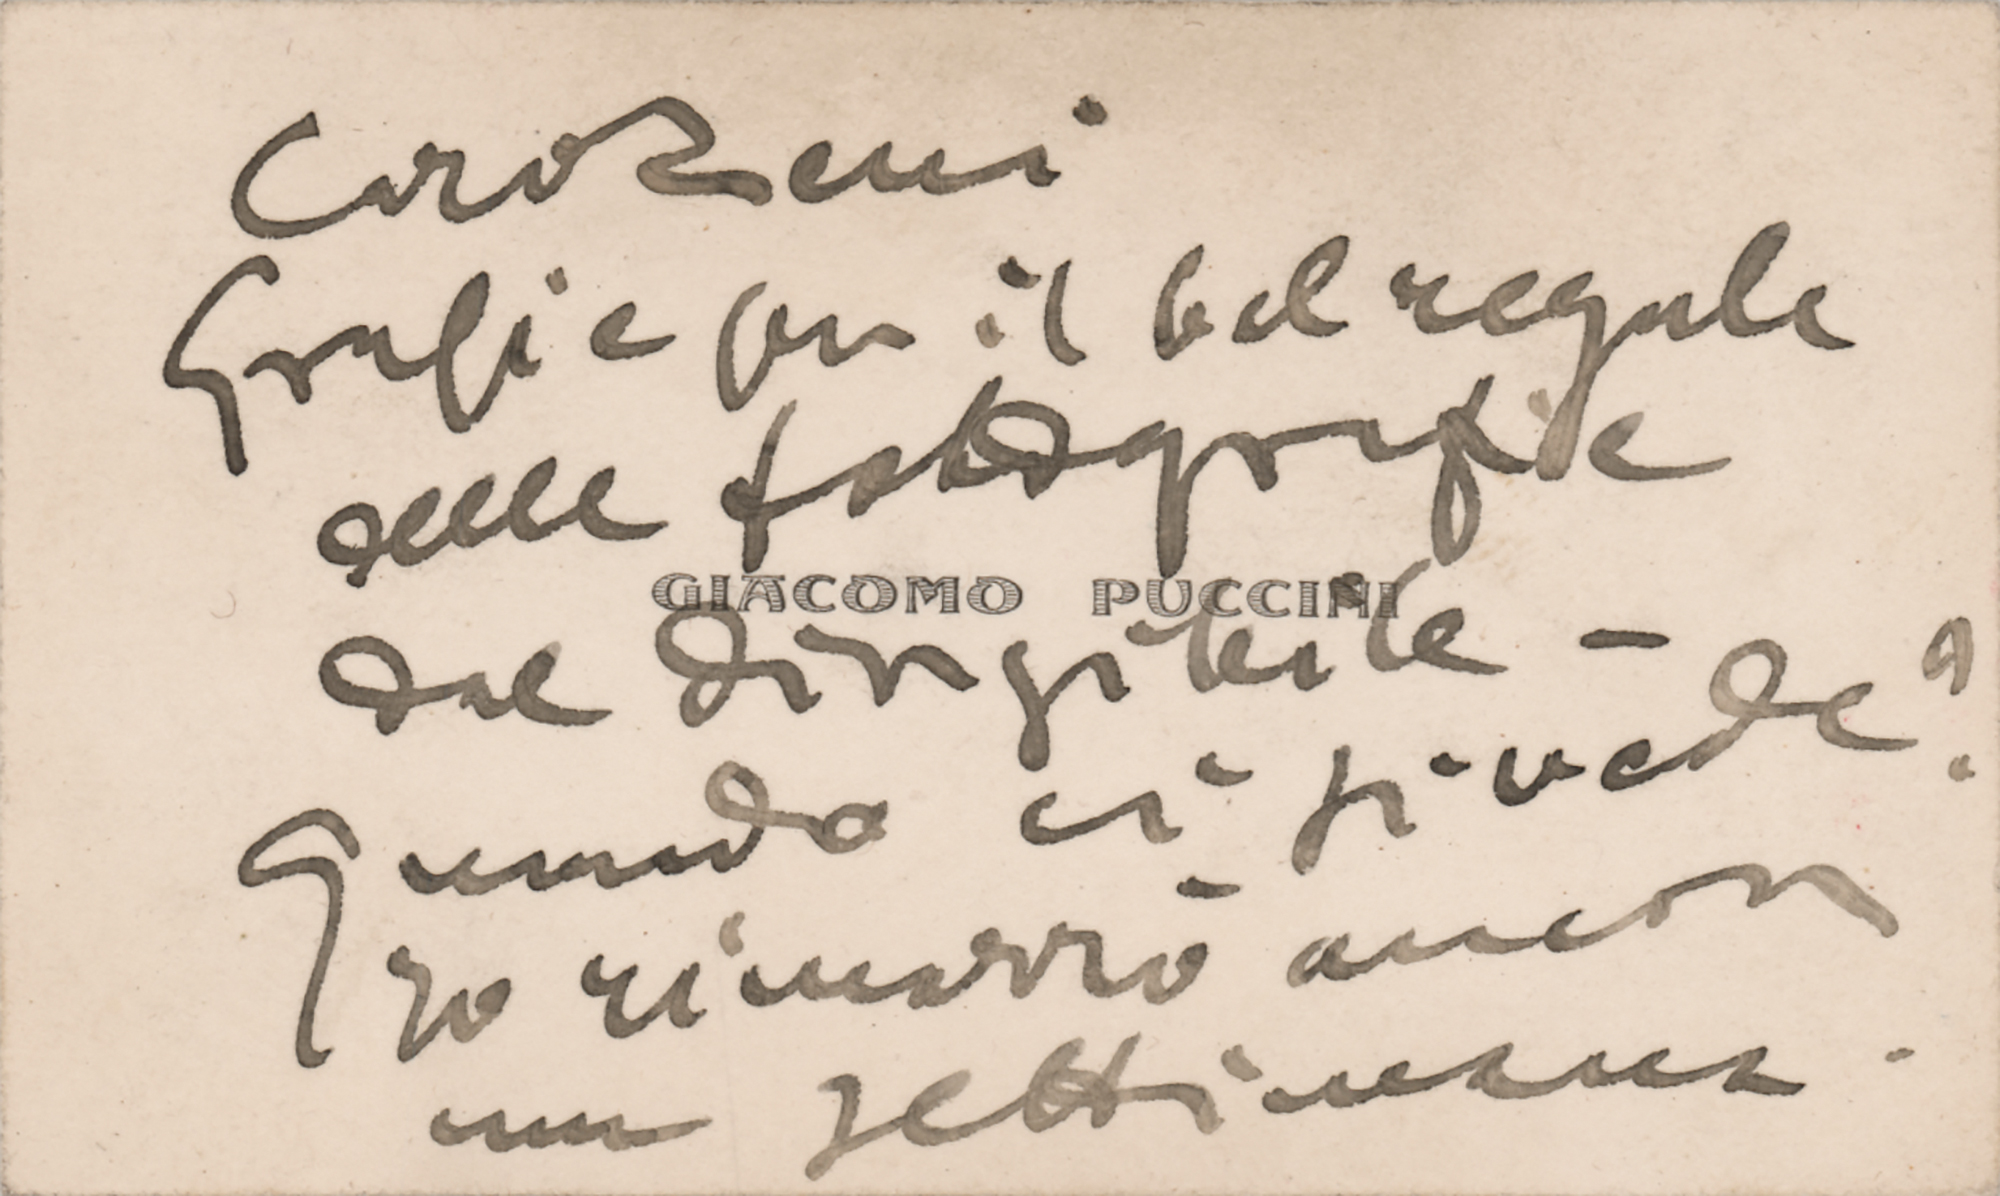 Caro Zeni
Grazie per il bel regalo
delle fotografie
GIACOMO PUCCINI
del dirigibile –
Quando ci si vede?
Io rimarrò ancor
una settimana.